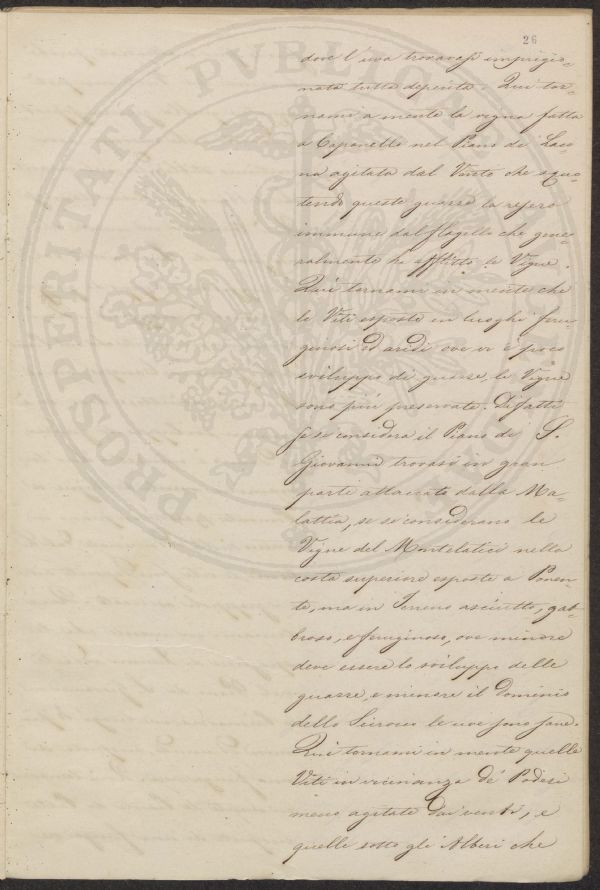 26
dove l'uva trovavasi imprigio-
nata tutta deperita. Qui tor-
nami a mente la vigna fatta
a Caparello nel Piano di Laco-
na agitata dal Vento che squo-
tendo queste guazze la resero
immune dal flagello che gene-
ralmente ha afflitto le Vigne.
Qui tornami in mente che
le Viti esposte in luoghi feru-
ginosi ed aridi ove vi è poco
sviluppo di guazze, le Vigne
sono più preservate. Difatti
se si considera il Piano di S.
Giovanni trovasi in gran
parte attaccato dalla Ma-
lattia, se si considerano le
Vigne del Montelatici nella
costa superiore esposte a Ponen-
te, ma in Terreno asciutto, gab-
broso, e feruginoso, ove minore
deve essere lo sviluppo delle
guazze, e minore il Dominio
dello Scirocco le uve sono sane.
Qui tornami in mente quelle
Viti in vicinanza de' Poderi
meno agitate dai venti, e
quelle sotto gli Alberi che
PROSPERITATI PVBLICAE